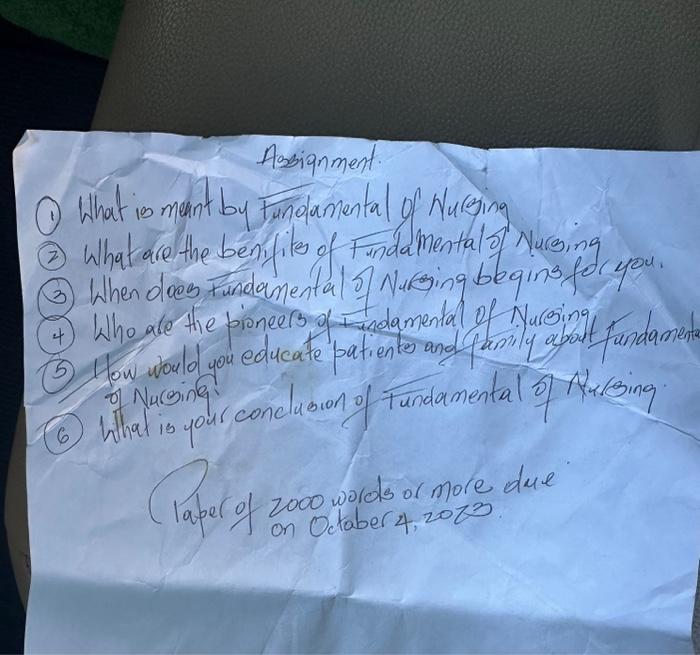 Assignment.
① What is meant by Fundamental of Nursing
② What are the benifits of Fundamental of Nursing
③ When does Fundamental of Nursing begins for you.
④ Who are the pioneers of Fundamental of Nursing
⑤ How would you educate patients and family about Fundamental
of Nursing?
⑥ What is your conclusion of Fundamental of Nursing.
Paper of 2000 words or more due
on October 4, 2023.